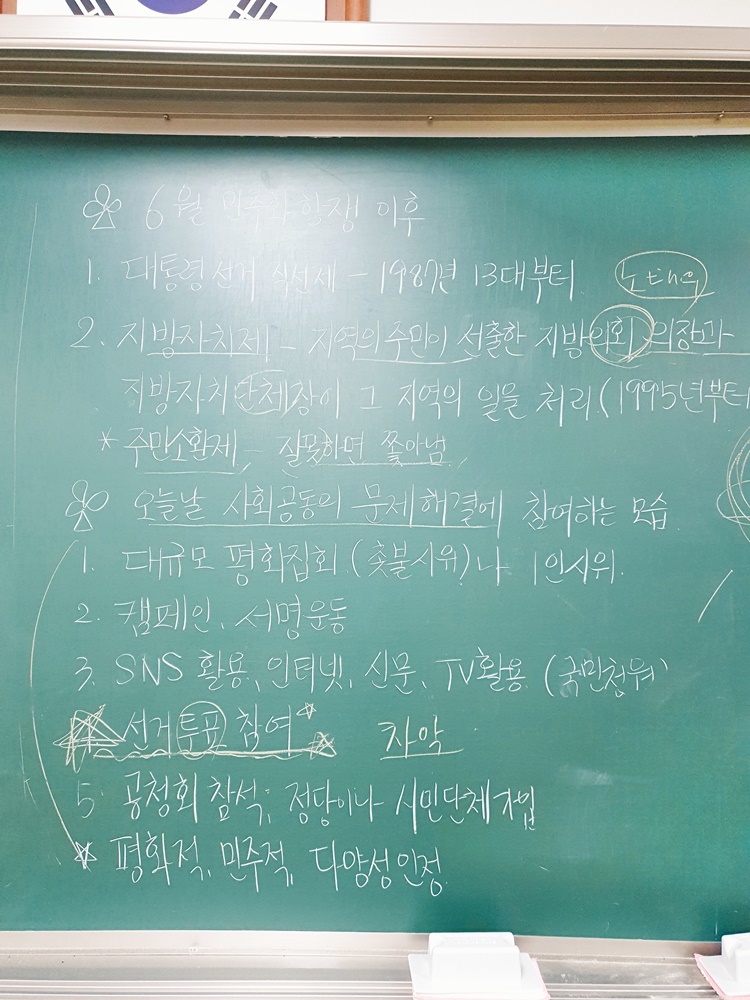 6월 민주화항쟁 이후
1. 대통령선거 직선제 - 1987년 13대부터 노태우
2. 지방자치제 - 지역의 주민이 선출한 지방의회 의장과
지방자치단체장이 그 지역의 일을 처리 (1995년부터
* 주민소환제 - 잘못하면 쫓아냄.
오늘날 사회공동의 문제해결에 참여하는 모습
1. 대규모 평화집회 (촛불시위)나 1인시위.
2. 캠페인, 서명운동
3. SNS 활용, 인터넷, 신문, TV활용 (국민청원)
선거투표 참여
5 공청회 참석, 정당이나 시민단체 가입
평화적, 민주적, 다양성인정.